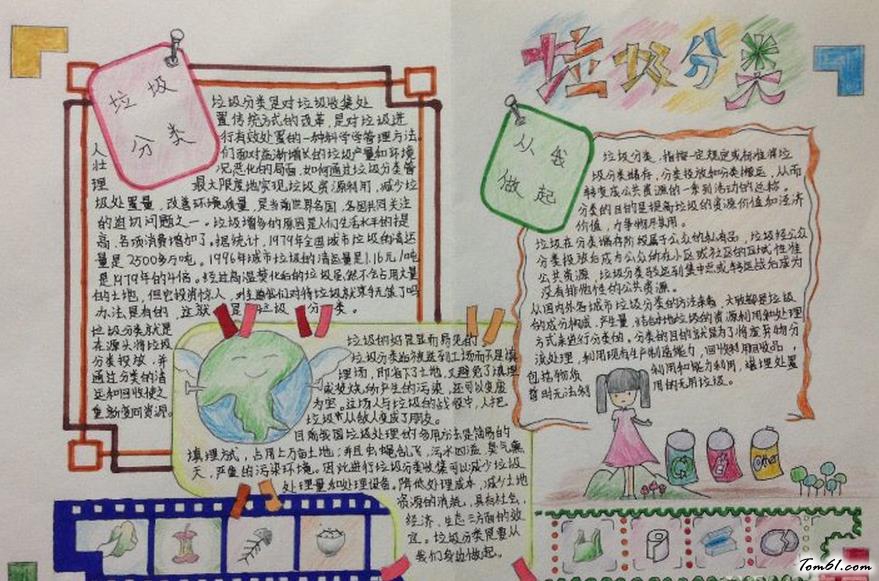 垃圾
分类
垃圾分类是对垃圾收集处
置传统方式的改革，是对垃圾进
行有效处置的一种科学管理方法。
人们面对日益增长的垃圾产量和环境
状况恶化的局面，如何通过垃圾分类管
理 最大限度地实现垃圾资源利用，减少垃
圾处置量，改善环境质量，是当前世界各国，各国共同关注
的迫切问题之一。垃圾增多的原因是人们生活水平的提
高，各项消费增加了。据统计，1979年全国城市垃圾的清运
量是2500多万吨。1996年城市垃圾的清运量是1.16亿吨
是1979年的4倍。经过高温焚化后的垃圾虽然不会占用大量
的土地，但它投资惊人，
办法是有的，这就是垃圾分类。
垃圾分类就是
在源头将垃圾
分类投放，并
通过分类的清
运和回收使之
重新变回资源。
垃圾的好处是显而易见的
垃圾分类后被送到工场而不是填
埋场，即省下了土地，又避免了填埋
或焚烧所产生的污染，还可以变废
为宝。这场人与垃圾的战役中，人把
垃圾从敌人变成了朋友。
目前我国垃圾处理的多用方法是简易的
填埋方式，占用上万亩土地；并且虫蝇乱飞，污水四溢，臭气熏
天，严重的污染环境。因此进行垃圾分类收集可以减少垃圾
处理量和处理设备，降低处理成本，减少土地
资源的消耗，具有社会、
经济、生态三方面的效
益。垃圾分类是要从
我们身边做起。
垃圾分类
从我
做起
垃圾分类，指按一定规定或标准将垃
圾分类储存，分类投放和分类搬运，从而
转变成公共资源的一系列活动的总称。
分类的目的是提高垃圾的资源价值和经济
价值，力争物尽其用。
垃圾在分类储存阶段属于公众的私有品，垃圾经公众
分类投放后成为公众所在小区或社区的区域性准
公共资源，垃圾分类转运到集中点或转运站后成为
没有排他性的公共资源。
从国内外各城市垃圾分类的方法来看，大致都是垃圾
的成分构成，产生量，结合本地垃圾的资源利用和处理
方式来进行分类的。分类的目的就是为了将废弃物分
流处理，利用现有生产制造能力，回收利用回收品，
包括物质 利用和能力利用，填埋处置
暂时无法利 用的无用垃圾。
Other
Tom61.com